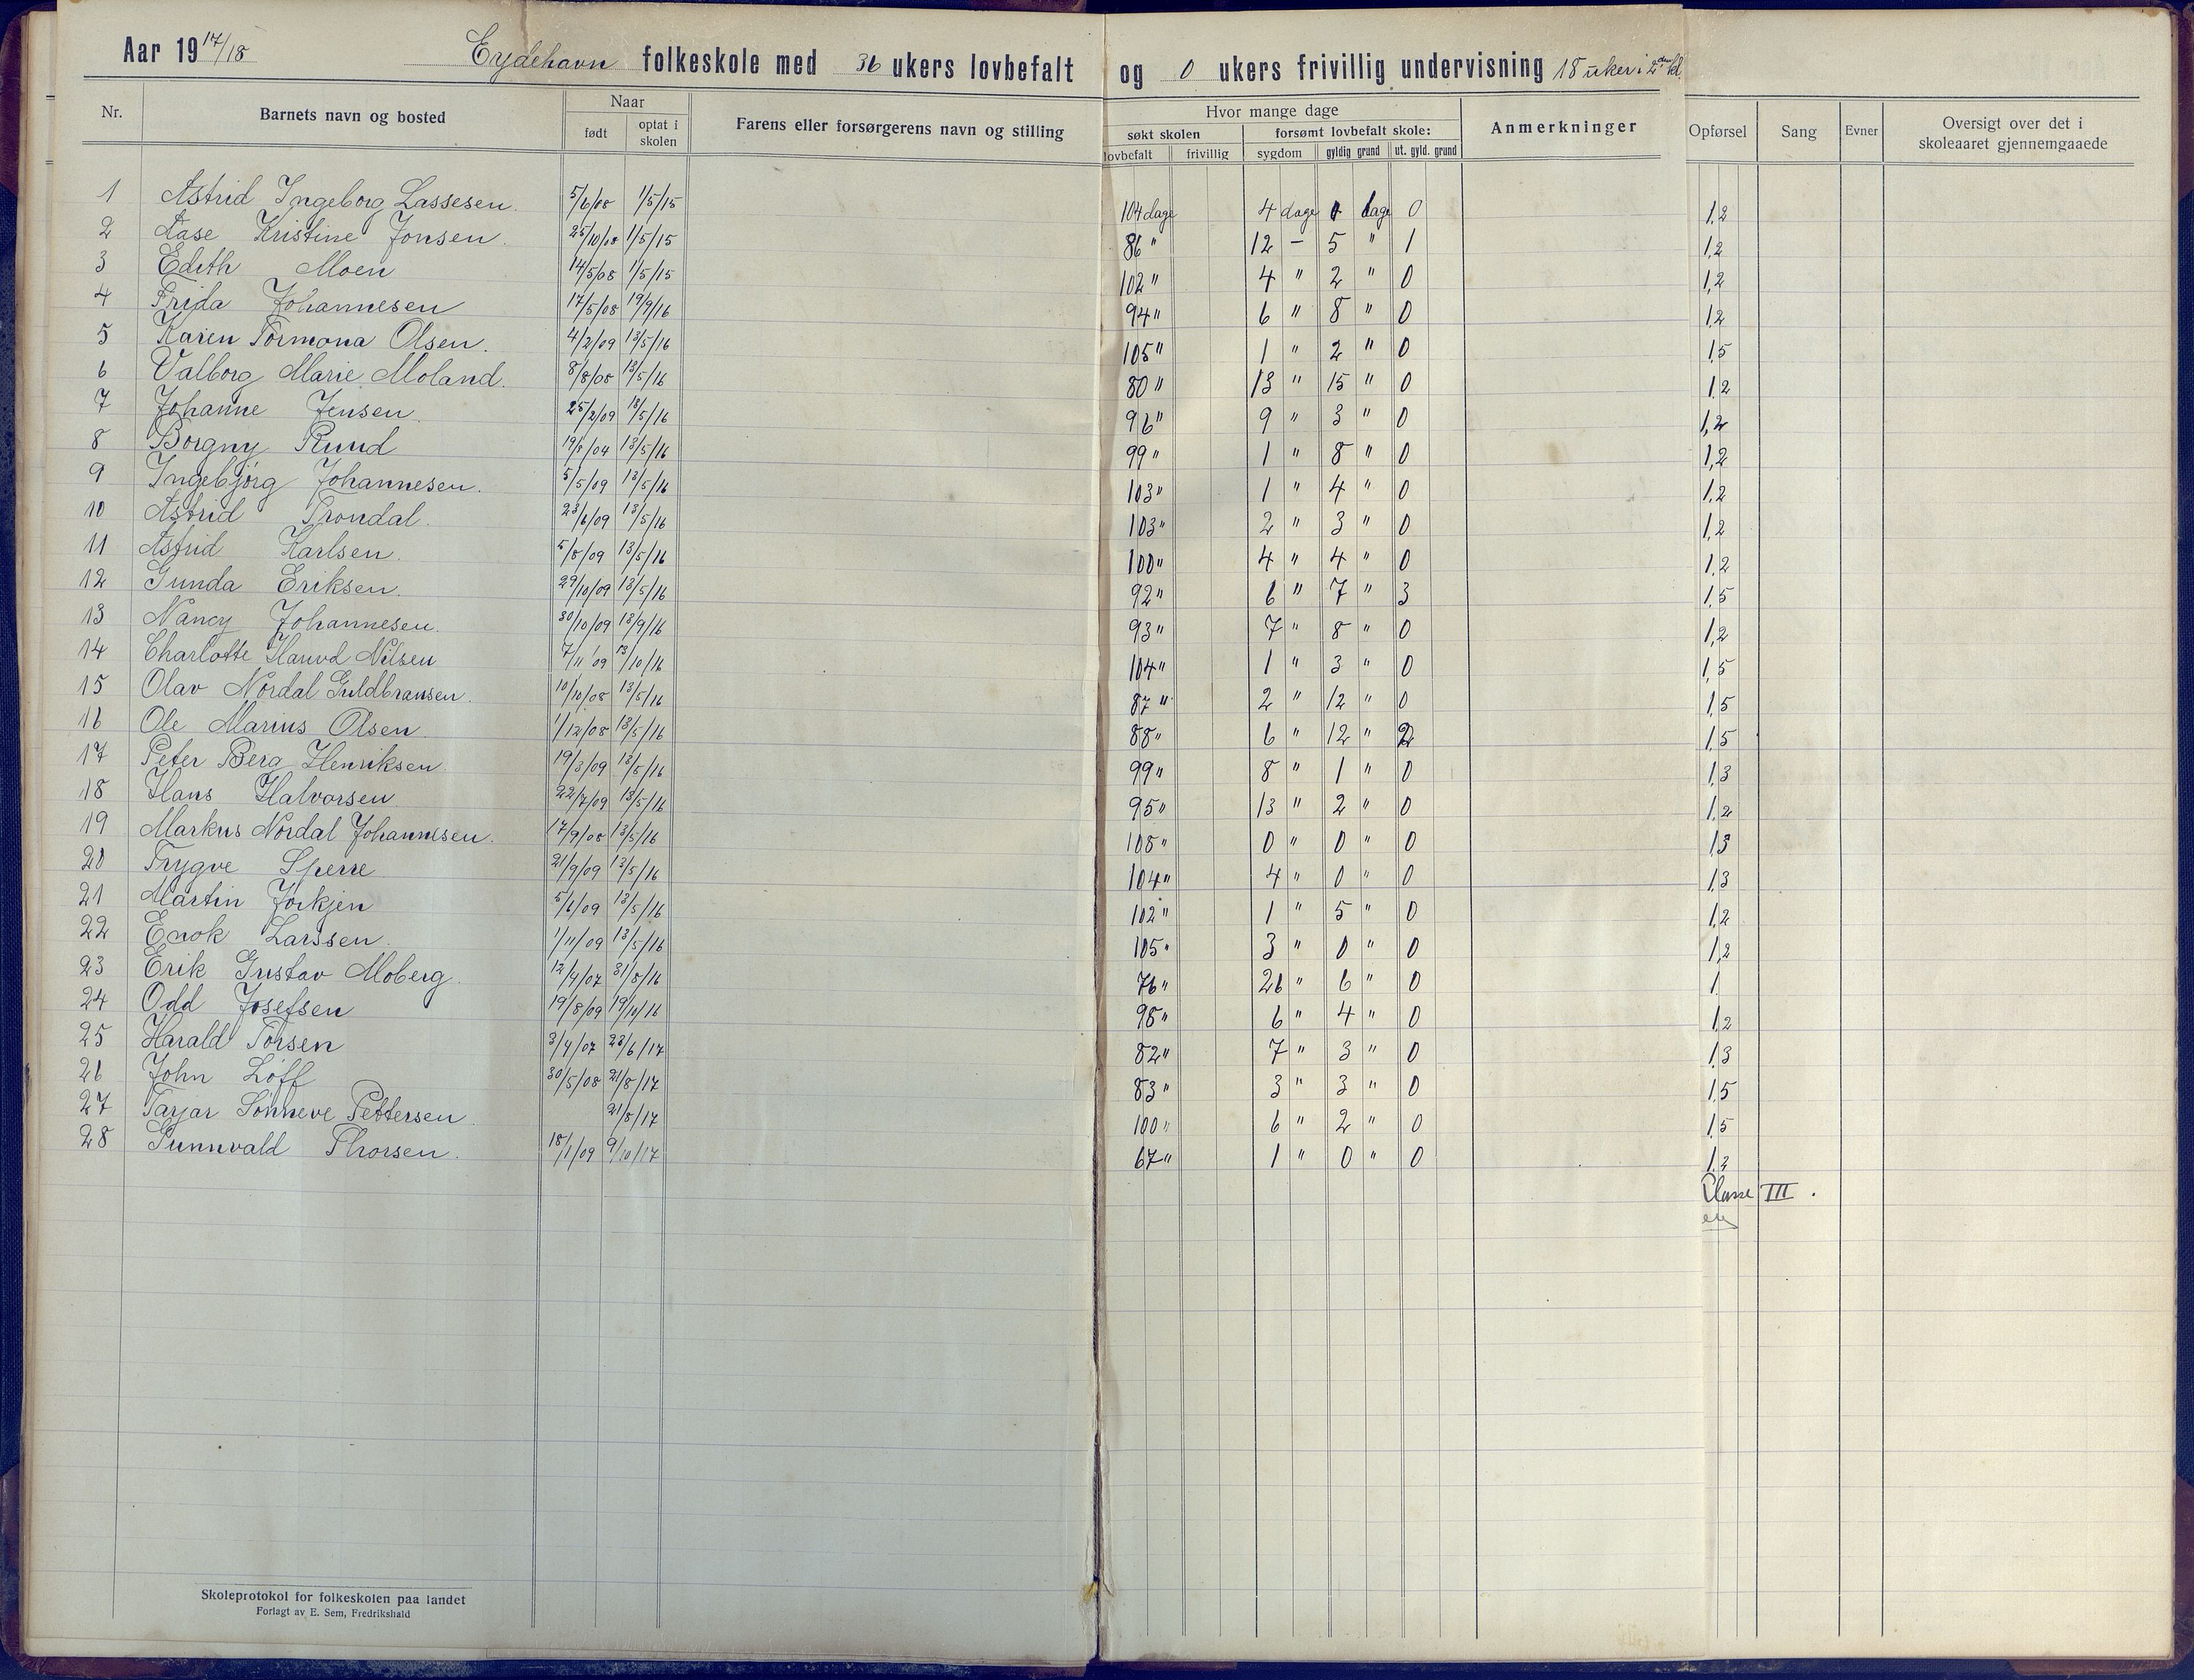 Aar 1917/18 Eydehavn folkeskole med 36 ukers lovbefalt og 0 ukers frivillig undervisning 18 uker i 2den kl.
Nr. Barnets navn og bosted Naar født optat i skolen Farens eller forsørgerens navn og stilling Hvor mange dage søkt skolen lovbefalt frivillig forsømt lovbefalt skole: sygdom gyldig grund ut. gyld. grund Anmerkninger Opførsel Sang Evner Oversigt over det i skoleaaret gjennemgaaede
1 Astrid Ingeborg Lassesen. 5/6/08 1/5/15 104 dage 4 dage 0 dage 0 1,2
2 Aase Kristine Jonsen. 25/10/08 1/5/15 86 " 12 – 5 " 1 1,2
3 Edith Moen 14/5/08 1/5/15 102 " 4 " 2 " 0 1,2
4 Frida Johannesen 17/5/08 19/9/16 94 " 6 " 8 " 0 1,2
5 Karen Tormona Olsen. 4/2/09 13/5/16 105 " 1 " 2 " 0 1,5
6 Valborg Marie Moland. 8/8/08 13/5/16 80 " 13 " 15 " 0 1,2
7 Johanne Jensen 25/2/09 13/5/16 96 " 9 " 3 " 0 1,2
8 Borgny Ruud 19/5/04 13/5/16 99 " 1 " 8 " 0 1,2
9 Ingebjørg Johannesen. 5/5/09 13/5/16 103 " 1 " 4 " 0 1,2
10 Astrid Trondal. 23/6/09 13/5/16 103 " 2 " 3 " 0 1,2
11 Astrid Karlsen. 5/8/09 13/5/16 100 " 4 " 4 " 0 1,2
12 Gunda Eriksen. 29/10/09 13/5/16 92 " 6 " 7 " 3 1,5
13 Nancy Johannesen. 30/10/09 18/9/16 93 " 7 " 8 " 0 1,2
14 Charlotte Nilsen 7/11/09 13/10/16 104 " 1 " 3 " 0 1,5
15 Olav Nordal Guldbransen. 10/10/08 13/5/16 87 " 2 " 12 " 0 1,5
16 Ole Marius Olsen 1/12/08 13/5/16 88 " 6 " 12 " 2 1,5
17 Peter Berg Henriksen. 19/3/09 13/5/16 99 " 8 " 1 " 0 1,3
18 Hans Halvorsen 22/7/09 13/5/16 95 " 13 " 2 " 0 1,2
19 Markus Nordal Johannesen. 17/9/08 13/5/16 108 " 0 " 0 " 0 1,3
20 Trygve Sperre 21/9/09 13/5/16 104 " 4 " 0 " 0 1,3
21 Martin Jörkjen 5/6/09 13/5/16 102 " 1 " 5 " 0 1,2
22 Enok Larssen. 1/11/09 13/5/16 105 " 3 " 0 " 0 1,2
23 Erik Gustav Moberg. 12/4/07 31/8/16 76 " 26 " 6 " 0 1
24 Odd Josefsen 19/8/09 19/10/16 98 " 6 " 4 " 0 1,2
25 Harald Torsen 3/4/07 23/6/17 82 " 7 " 3 " 0 1,3
26 John Löff 30/5/08 21/8/17 83 " 3 " 3 " 0 1,5
27 Tarjar Sönneve Pettersen 21/8/17 100 " 6 " 2 " 0 1,5
28 Gunnvald Thorsen. 18/1/09 9/10/17 67 " 1 " 0 " 0 1,3
Classe III.
Skoleprotokol for folkeskolen paa landet
Forlagt av E. Sem, Fredrikshald